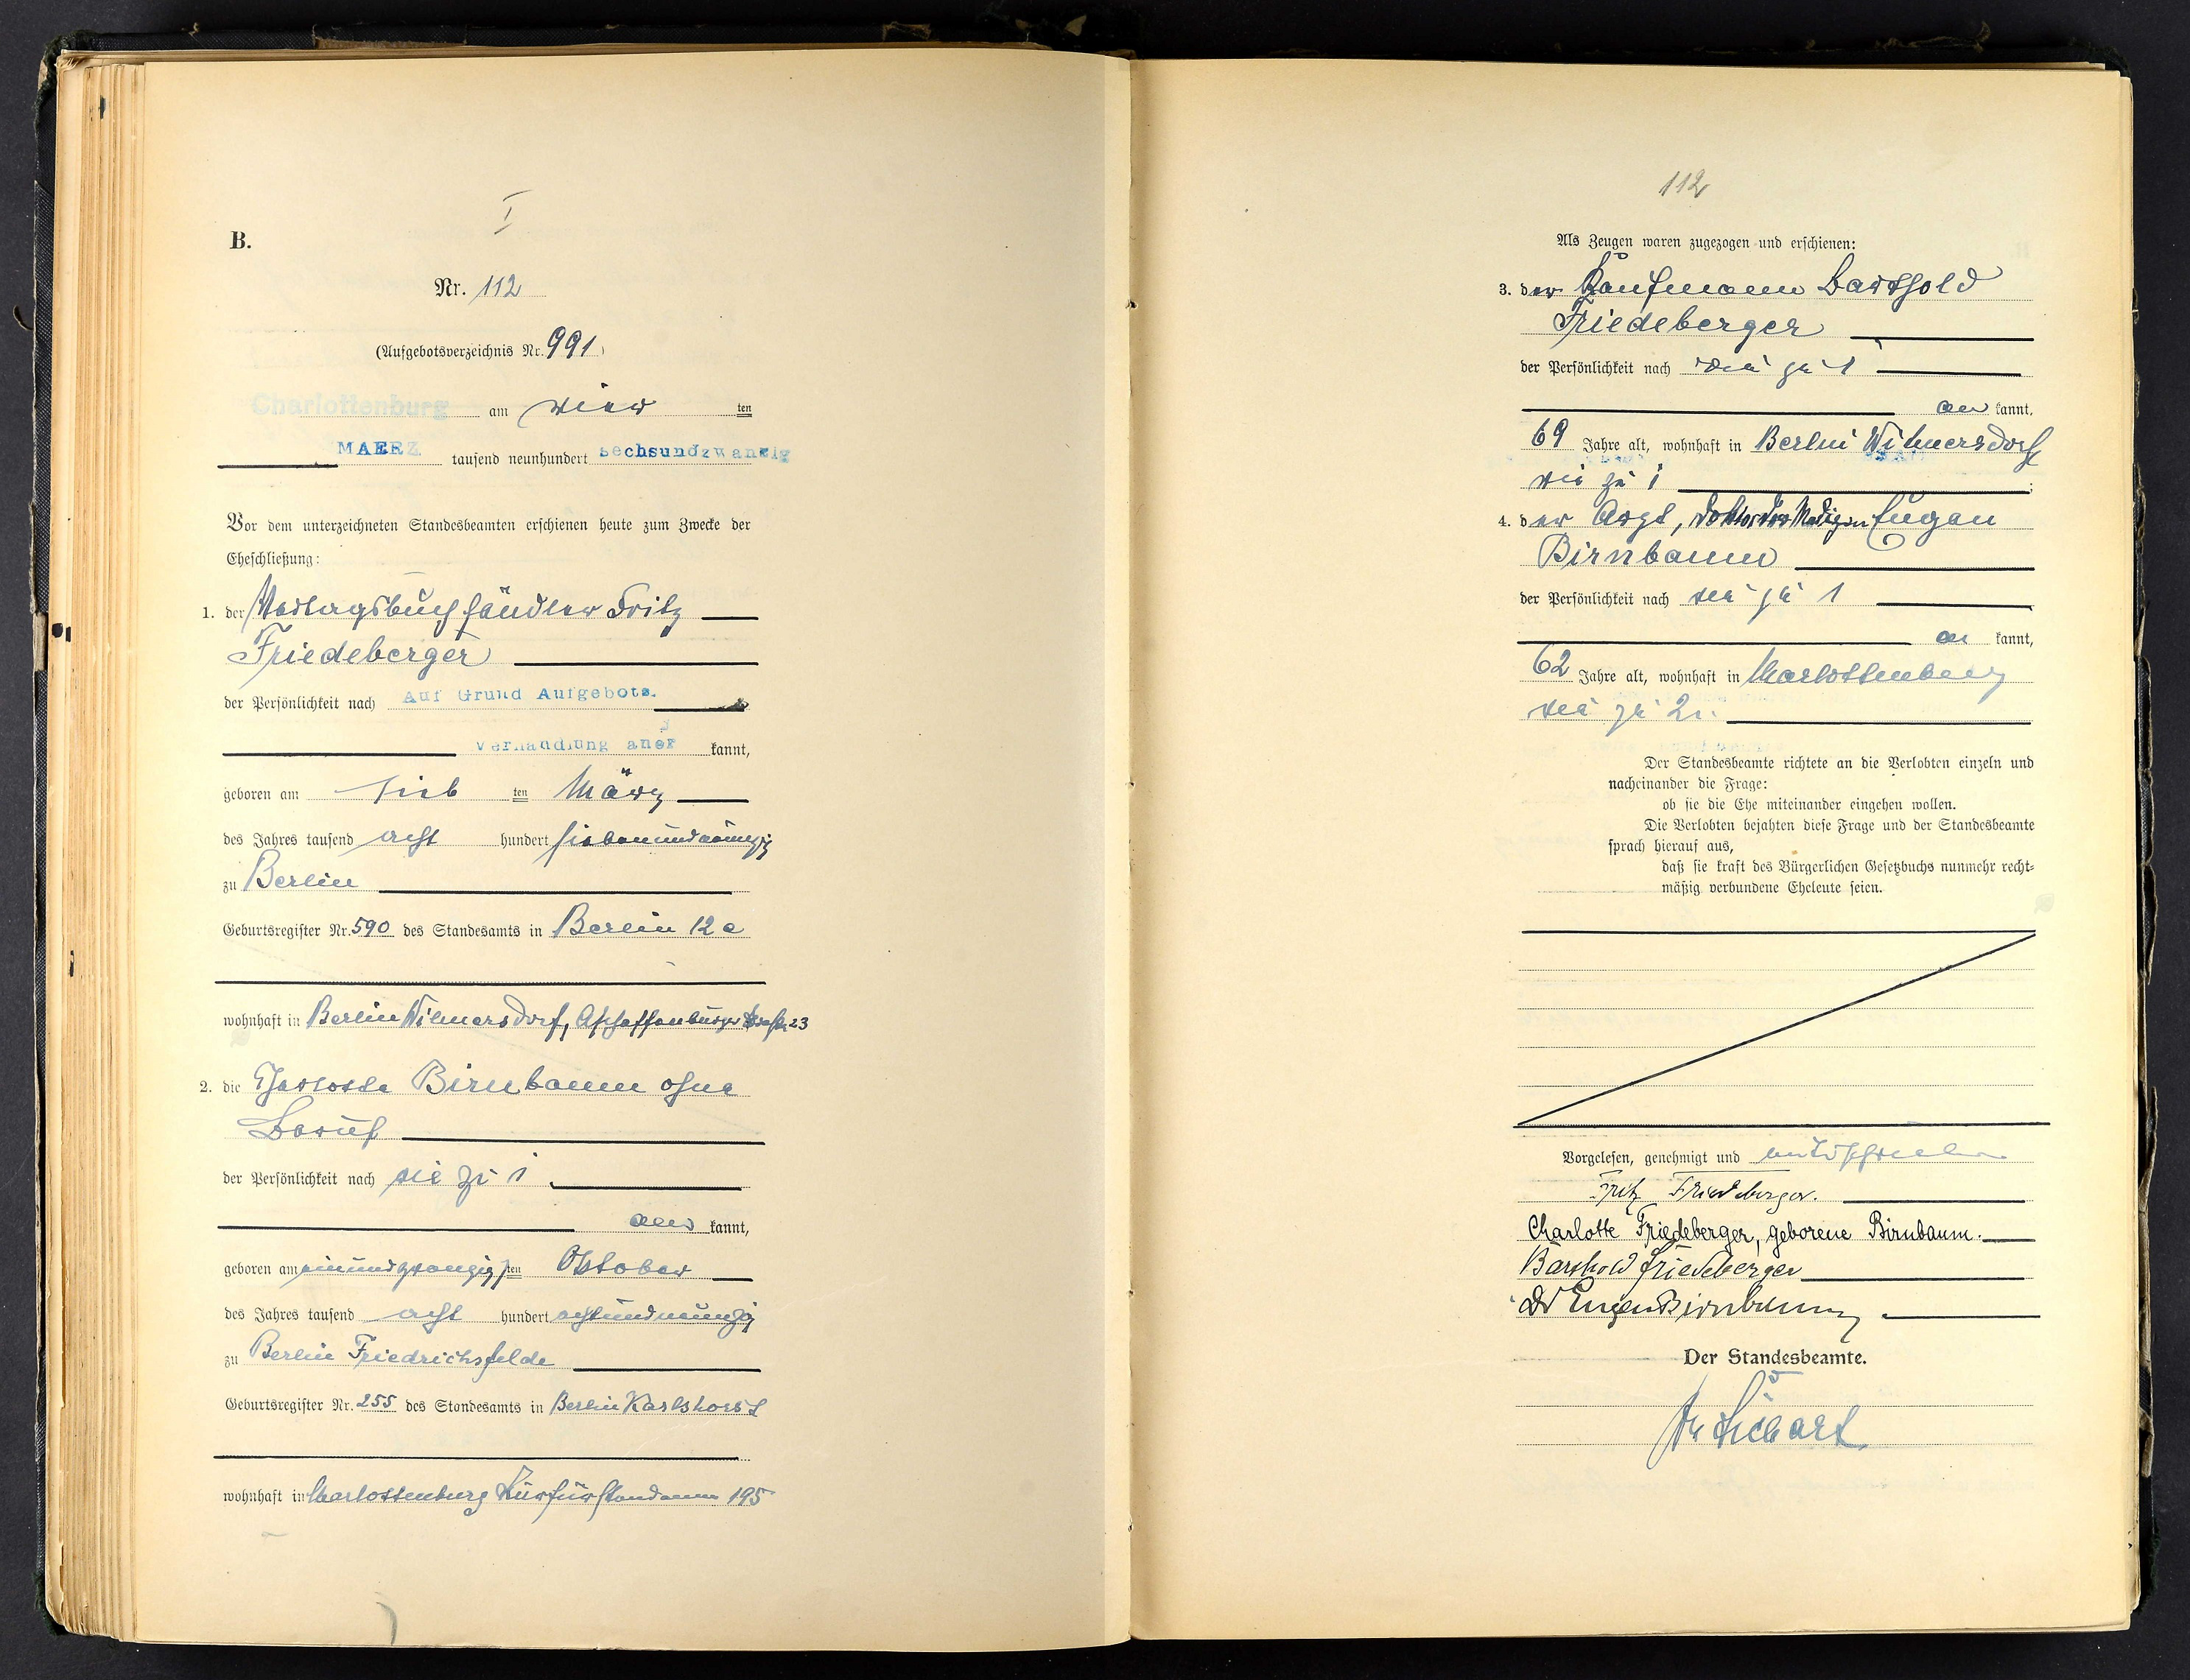 I
B.
Nr. 112
(Aufgebotsverzeichnis Nr. 991)
Charlottenburg am vier ten
MAERZ tausend neunhundert sechsundzwanzig
Vor dem unterzeichneten Standesbeamten erschienen heute zum Zwecke der
Eheschließung:
1. der Verlagsbuchhändler Fritz
Friedeberger
der Persönlichkeit nach Auf Grund Aufgebots.
verhandlung aner kannt,
geboren am sieb ten März
des Jahres tausend acht hundert siebenundneunzig
zu Berlin
Geburtsregister Nr. 590 des Standesamts in Berlin 12a
wohnhaft in Berlin Wilmersdorf, Aschaffenburger Straße 23
2. die Charlotte Birnbaum ohne
Beruf
der Persönlichkeit nach wie zu 1
aner kannt,
geboren am einundzwanzigsten Oktober
des Jahres tausend acht hundert achtundneunzig
zu Berlin Friedrichsfelde
Geburtsregister Nr. 255 des Standesamts in Berlin Karlshorst
wohnhaft in Charlottenburg Kurfürstendamm 195
112
Als Zeugen waren zugezogen und erschienen:
3. der Kaufmann Barthold
Friedeberger
der Persönlichkeit nach wie zu 1
an kannt,
69 Jahre alt, wohnhaft in Berlin Wilmersdorf
wie zu 1;
4. der Arzt, Doktor der Medizin Eugen
Birnbaum
der Persönlichkeit nach wie zu 1
an kannt,
62 Jahre alt, wohnhaft in Charlottenburg
wie zu 2.
Der Standesbeamte richtete an die Verlobten einzeln und
nacheinander die Frage:
ob sie die Ehe miteinander eingehen wollen.
Die Verlobten bejahten diese Frage und der Standesbeamte
sprach hierauf aus,
daß sie kraft des Bürgerlichen Gesetzbuchs nunmehr recht-
mäßig verbundene Eheleute seien.
Vorgelesen, genehmigt und unterschrieben
Fritz Friedeberger.
Charlotte Friedeberger, geborene Birnbaum.
Barthold Friedeberger
Dr Eugen Birnbaum
Der Standesbeamte.